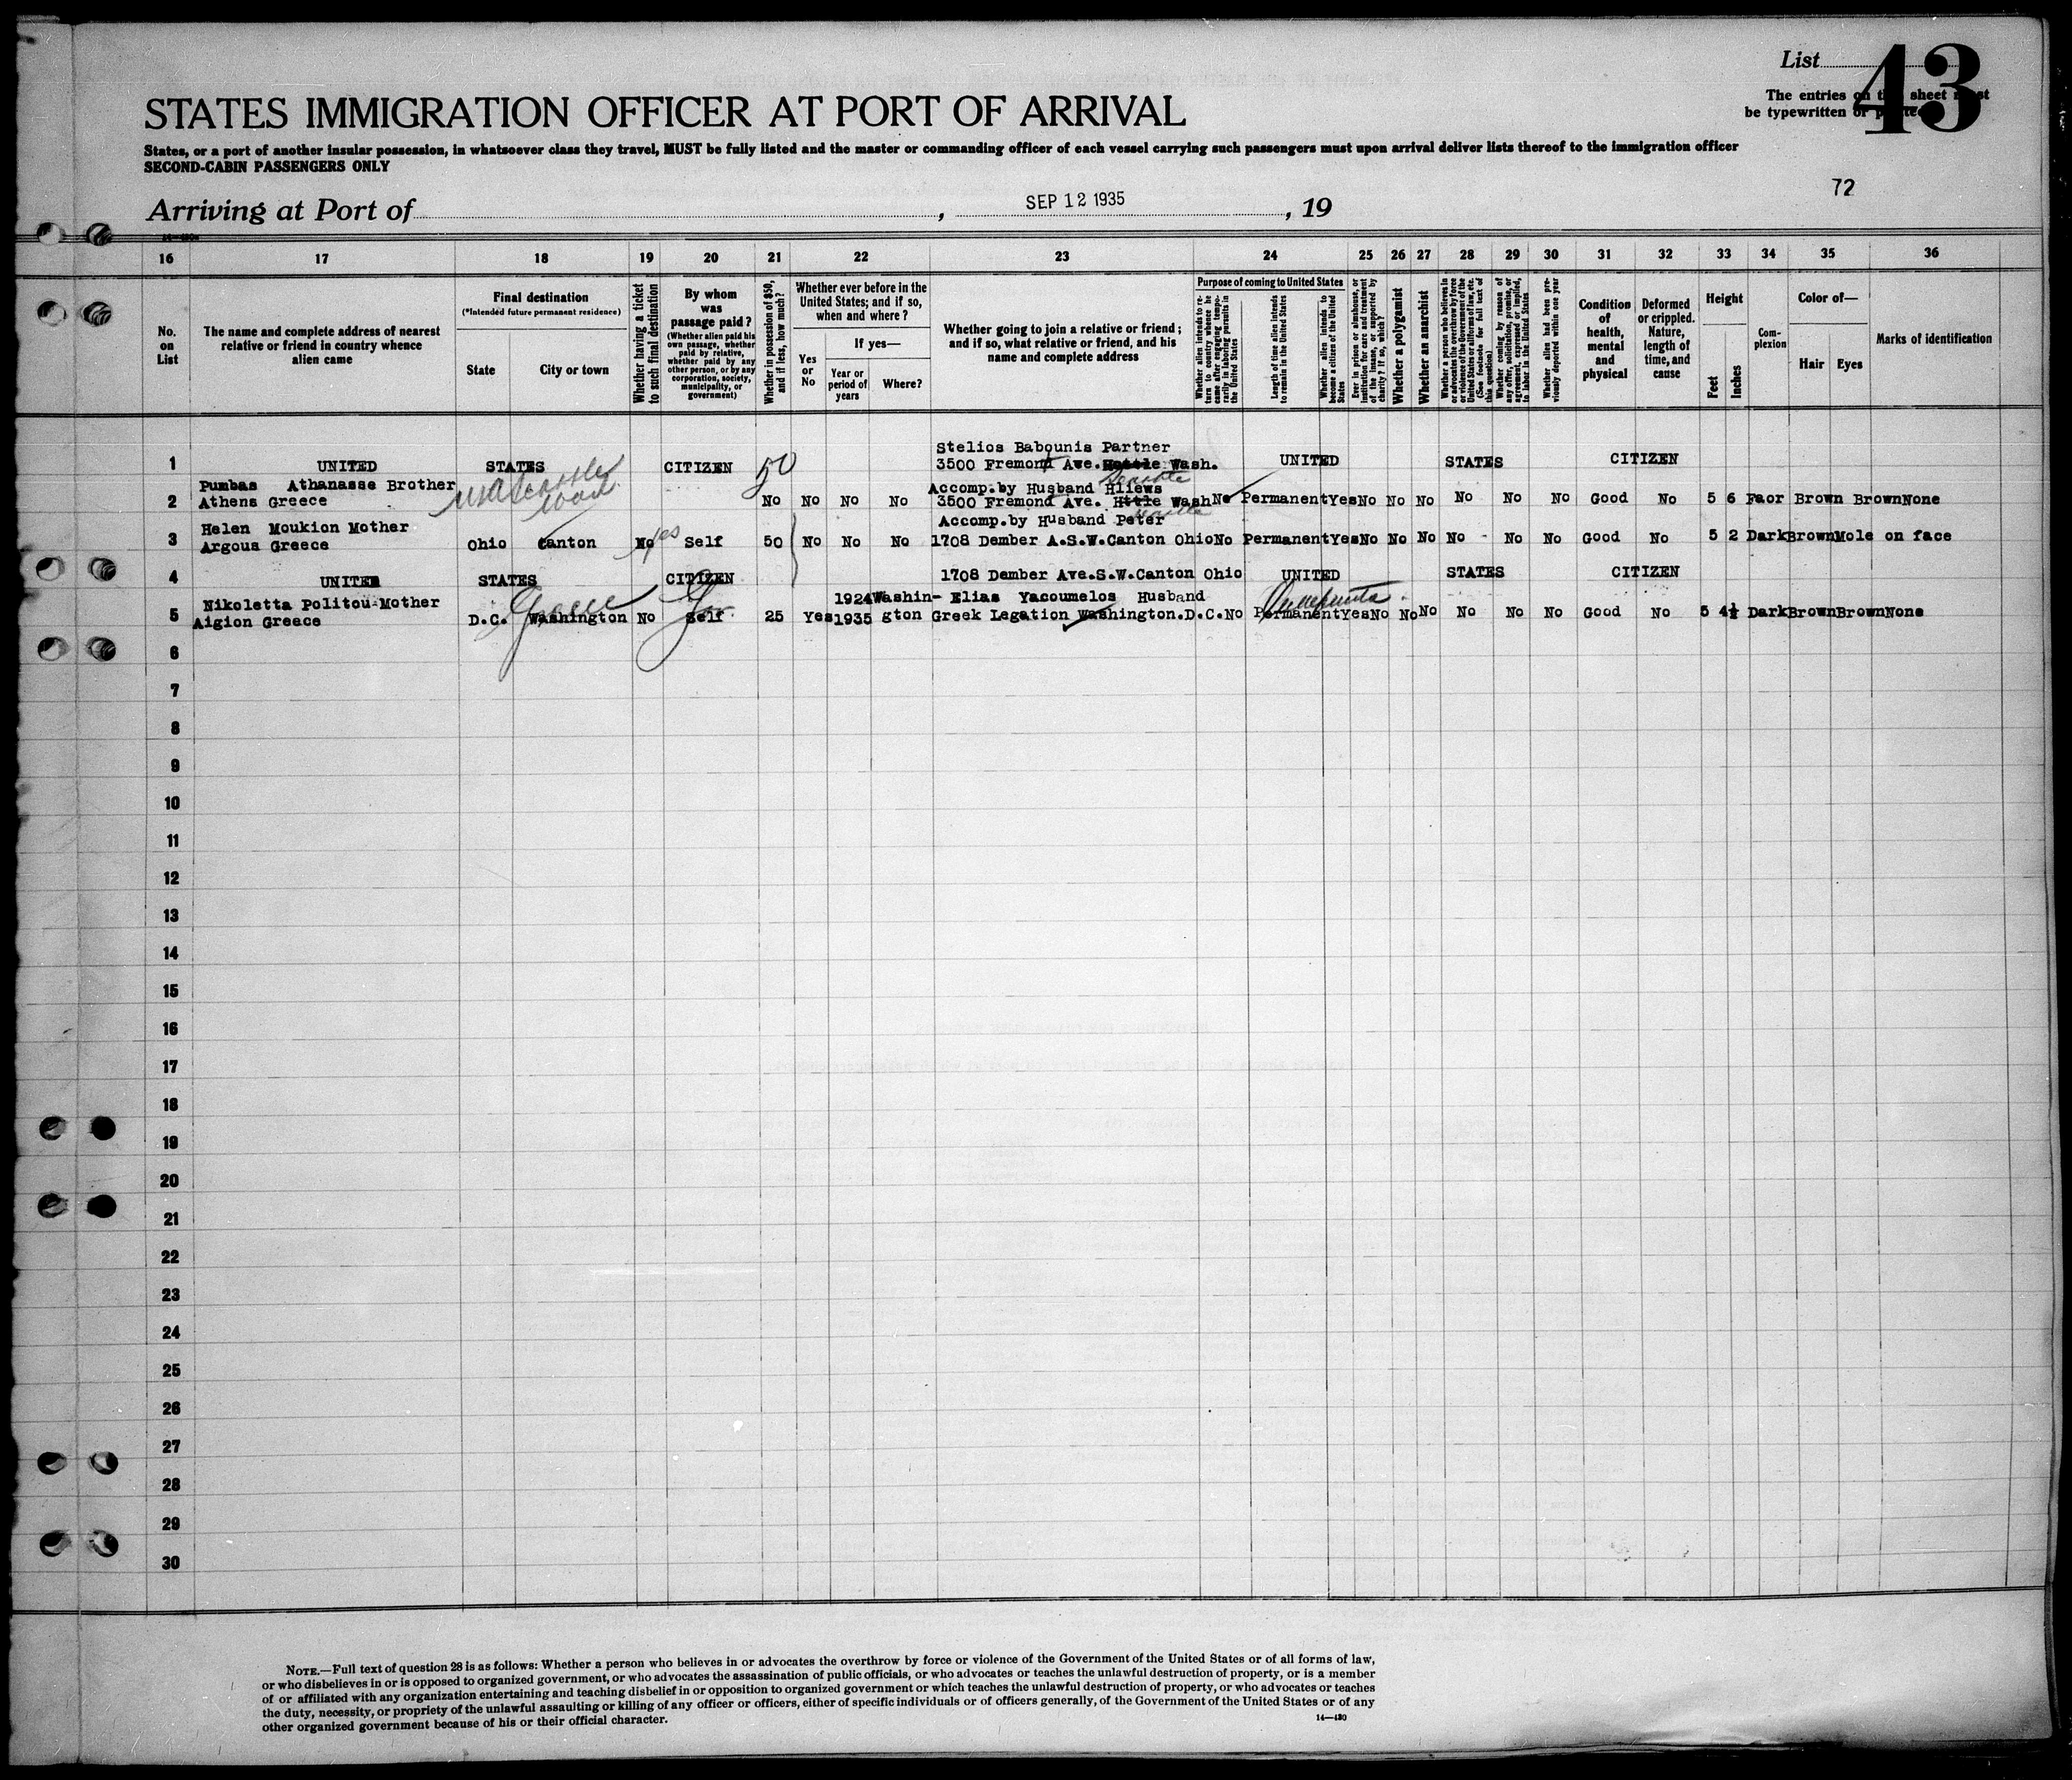 List 43
STATES IMMIGRATION OFFICER AT PORT OF ARRIVAL
The entries on this sheet must
be typewritten or printed
States, or a port of another insular possession, in whatsoever class they travel, MUST be fully listed and the master or commanding officer of each vessel carrying such passengers must upon arrival deliver lists thereof to the immigration officer
SECOND-CABIN PASSENGERS ONLY
72
Arriving at Port of , SEP 12 1935 , 19
16 17 18 19 20 21 22 23 24 25 26 27 28 29 30 31 32 33 34 35 36
No. on List
The name and complete address of nearest relative or friend in country whence alien came
Final destination
(*Intended future permanent residence)
State
City or town
Whether having a ticket to such final destination
By whom was passage paid?
(Whether alien paid his own passage, whether paid by relative, whether paid by any other person, or by any corporation, society, municipality, or government)
Whether in possession of $50, and if less, how much?
Whether ever before in the United States; and if so, when and where?
Yes or No
If yes—
Year or period of years
Where?
Whether going to join a relative or friend; and if so, what relative or friend, and his name and complete address
Purpose of coming to United States
Whether alien intends to return to country whence he came after engaging temporarily in laboring pursuits in the United States
Length of time alien intends to remain in the United States
Whether alien intends to become a citizen of the United States
Ever in prison or almshouse, or institution for care and treatment of the insane, or supported by charity? If so, which?
Whether a polygamist
Whether an anarchist
Whether a person who believes in or advocates the overthrow by force or violence of the Government of the United States or all forms of law, etc. (See footnote for full text of this question)
Whether coming by reason of any offer, solicitation, promise, or agreement, expressed or implied, to labor in the United States
Whether alien had been previously deported within one year
Condition of health, mental and physical
Deformed or crippled. Nature, length of time, and cause
Height
Feet
Inches
Complexion
Color of—
Hair Eyes
Marks of identification
Stelios Babounis Partner
1 UNITED STATES CITIZEN 50 3500 Fremond Ave. Wash. UNITED STATES CITIZEN
Pumbas Athanasse Brother Accomp.by Husband Hliews
2 Athens Greece No No No No 3500 Fremond Ave. Httle Wash No Permanent Yes No No No No No No Good No 5 6 Faor Brown Brown None
Helen Moukion Mother Accomp.by Husband Peter
3 Argous Greece Ohio Canton No yes Self 50 No No No 1708 Dember A.S.W.Canton Ohio No Permanent Yes No No No No - No No Good No 5 2 Dark Brown Mole on face
4 UNITED STATES CITIZEN 1708 Dember Ave.S.W.Canton Ohio UNITED STATES CITIZEN
Nikoletta Politou-Mother Greece 1924 Washin- Elias Yacoumelos Husband
5 Aigion Greece D.C. Washington No Self 25 Yes 1935 gton Greek Legation Washington.D.C. No Permanent Yes No No No No No No Good No 5 4½ Dark Brown Brown None
6
7
8
9
10
11
12
13
14
15
16
17
18
19
20
21
22
23
24
25
26
27
28
29
30
NOTE.—Full text of question 28 is as follows: Whether a person who believes in or advocates the overthrow by force or violence of the Government of the United States or of all forms of law,
or who disbelieves in or is opposed to organized government, or who advocates the assassination of public officials, or who advocates or teaches the unlawful destruction of property, or is a member
of or affiliated with any organization entertaining and teaching disbelief in or opposition to organized government or which teaches the unlawful destruction of property, or who advocates or teaches
the duty, necessity, or propriety of the unlawful assaulting or killing of any officer or officers, either of specific individuals or of officers generally, of the Government of the United States or of any
other organized government because of his or their official character.
14—430